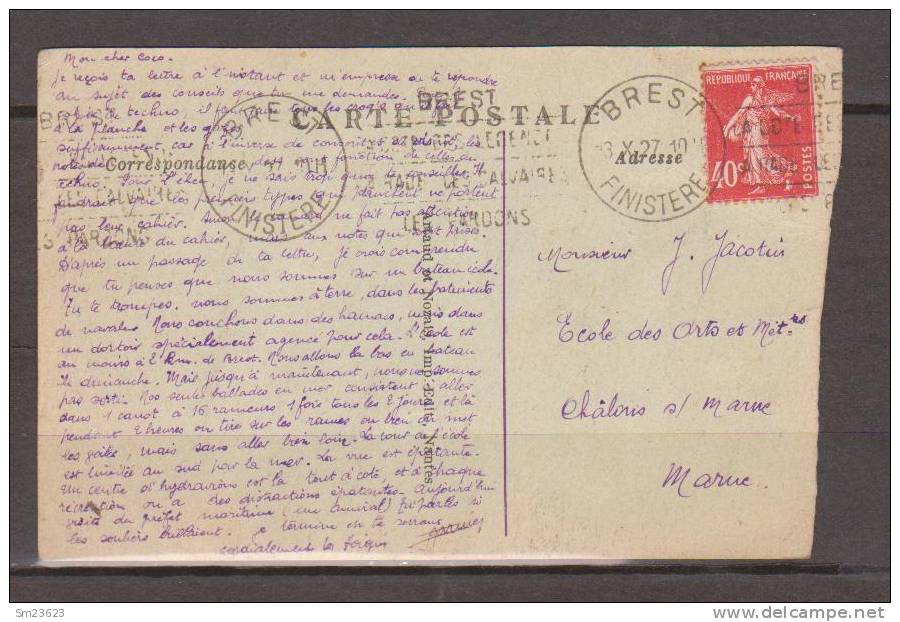 CARTE POSTALE
Correspondance
Adresse
BREST
FINISTERE
BREST
X.27
FINISTERE
REPUBLIQUE FRANÇAISE
40c
POSTES
Mon cher Coco.
Je reçois ta lettre à l'instant et m'empresse de te répondre
au sujet des conseils que tu me demandes.
de techno, il faut tous les croquis
à la Planche et les
suffisamment, car à l'inverse de
notes de
techno. Pour je ne sais trop quoi te conseiller. Il
faudrait que les premiers types que
pas leur cahier. on ne fait pas attention
à la du cahier, mais aux notes que sont prises.
D'après un passage de ta lettre, je crois comprendre
que tu penses que nous sommes sur un bateau école.
Tu te trompes. nous sommes à terre, dans les batiments
de navale. Nous couchons dans des hamacs, mais dans
un dortoir spécialement agencé pour cela. L'école est
au moins à 2 Km. de Brest. Nous allons là bas en bateau
le dimanche. Mais jusqu'à maintenant, nous ne sommes
pas sortis. Nos seules ballades en mer consistent à aller
dans 1 canot à 16 rameurs 1 fois tous les 2 jours et là
pendant 2 heures on tire sur les rames ou bien on met
les voiles, mais sans aller bien loin. La cour de l'école
est limitée au sud par la mer. La vue est épatante.
Un centre d'hydravions est là tout à côté, et à chaque
récréation on a des distractions épatantes. Aujourd'hui
visite du préfet maritime (un amiral) Tu parles si
les souliers brillaient. Je termine en te serrant
cordialement la
Monsieur J. Jacotin
Ecole des Arts et Métrs
Châlons s/ Marne
Marne
Artaud et Nozais, Imp.-Edit., Nantes
Sm23623
www.delcampe.net